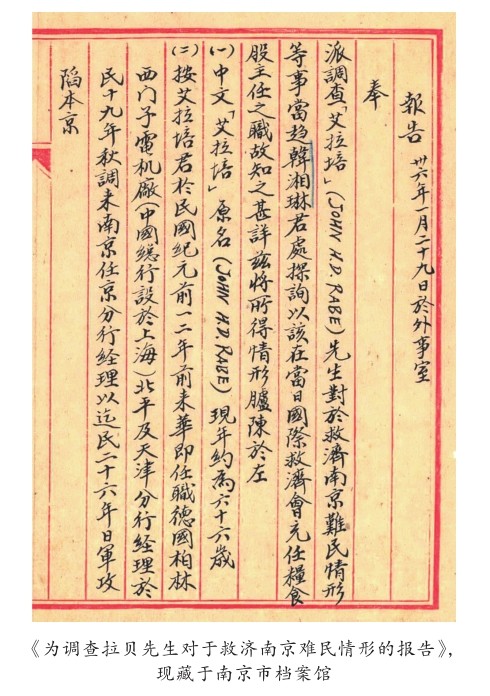 報告 卅六年一月二十九日於外事室
奉
派調查「艾拉培」(JOHN H.D. RABE)先生對於救濟南京難民情形
等事當趋韓湘琳君處探詢以該在當日國際救濟會充任糧食
股主任之職故知之甚詳兹將所得情形臚陳於左
(一)中文「艾拉培」原名(JOHN H.D. RABE)現年約爲六十六歲
(二)按艾拉培君於民國紀元前一二年前来華即任職德國柏林
西门子電机廠(中國總行設於上海)北平及天津分行經理於
民十九年秋調来南京任京分行經理以迄民二十六年日軍攻
陷本京
《为调查拉贝先生对于救济南京难民情形的报告》,
现藏于南京市档案馆